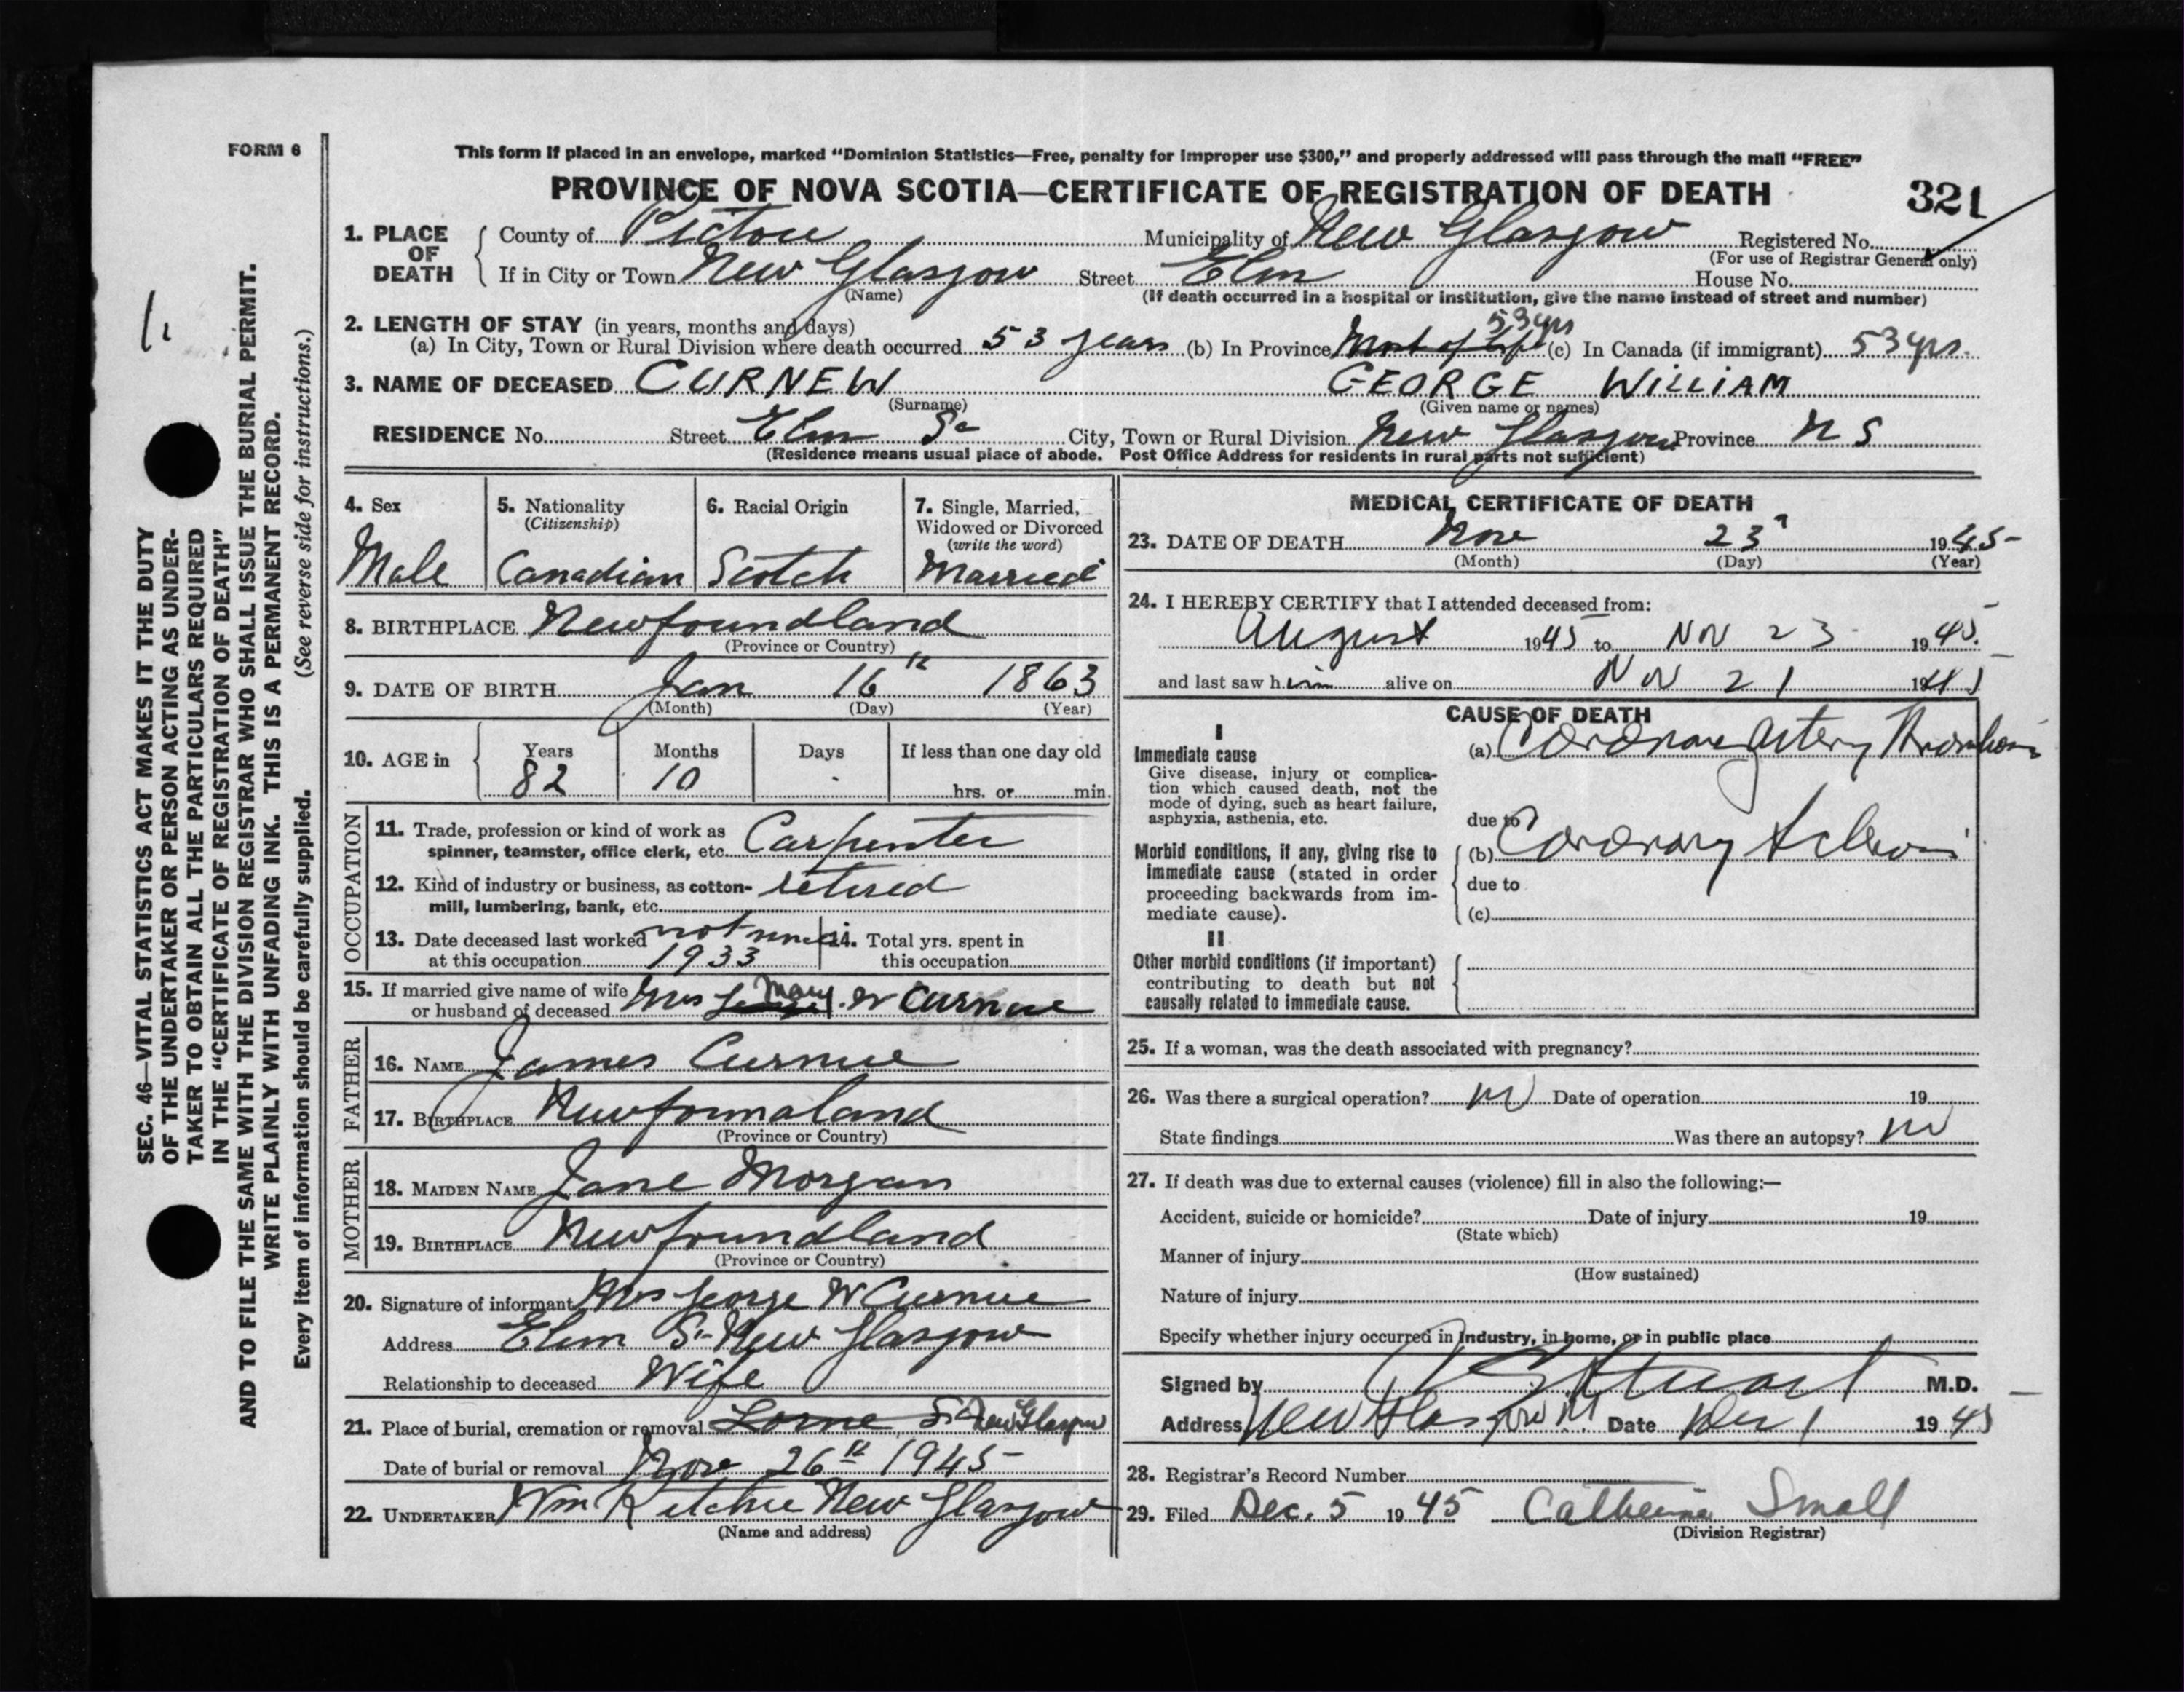 FORM 6
This form if placed in an envelope, marked “Dominion Statistics—Free, penalty for improper use $300,” and properly addressed will pass through the mail “FREE”
PROVINCE OF NOVA SCOTIA—CERTIFICATE OF REGISTRATION OF DEATH
321
1. PLACE OF DEATH
County of Pictou Municipality of New Glasgow Registered No.
(For use of Registrar General only)
If in City or Town New Glasgow Street Elm House No.
(Name) (If death occurred in a hospital or institution, give the name instead of street and number)
2. LENGTH OF STAY (in years, months and days)
53 yrs
(a) In City, Town or Rural Division where death occurred 53 years (b) In Province Most of life (c) In Canada (if immigrant) 53 yrs.
3. NAME OF DECEASED CURNEW GEORGE WILLIAM
(Surname) (Given name or names)
RESIDENCE No. Street Elm St City, Town or Rural Division New Glasgow Province N S
(Residence means usual place of abode. Post Office Address for residents in rural parts not sufficient)
4. Sex
Male
5. Nationality
(Citizenship)
Canadian
6. Racial Origin
Scotch
7. Single, Married,
Widowed or Divorced
(write the word)
Married
8. BIRTHPLACE Newfoundland
(Province or Country)
9. DATE OF BIRTH Jan 16th 1863
(Month) (Day) (Year)
10. AGE in
Years Months Days If less than one day old
82 10 hrs. or min.
OCCUPATION
11. Trade, profession or kind of work as
spinner, teamster, office clerk, etc. Carpenter
12. Kind of industry or business, as cotton-
mill, lumbering, bank, etc. retired
13. Date deceased last worked
at this occupation not since 1933
14. Total yrs. spent in
this occupation
15. If married give name of wife
or husband of deceased Mrs Mary W Curnew
FATHER
16. NAME James Curnew
17. BIRTHPLACE Newfoundland
(Province or Country)
MOTHER
18. MAIDEN NAME Jane Morgan
19. BIRTHPLACE Newfoundland
(Province or Country)
20. Signature of informant Mrs George W Curnew
Address Elm St New Glasgow
Relationship to deceased Wife
21. Place of burial, cremation or removal Lorne St New Glasgow
Date of burial or removal Nov 26th 1945
22. UNDERTAKER Wm Ritchie New Glasgow
(Name and address)
MEDICAL CERTIFICATE OF DEATH
23. DATE OF DEATH Nov 23 1945
(Month) (Day) (Year)
24. I HEREBY CERTIFY that I attended deceased from:
August 1945 to Nov 23 1945
and last saw him alive on Nov 21 1945
CAUSE OF DEATH
I
Immediate cause
Give disease, injury or complica-
tion which caused death, not the
mode of dying, such as heart failure,
asphyxia, asthenia, etc.
(a) Coronary artery Thrombosis
due to
Morbid conditions, if any, giving rise to
immediate cause (stated in order
proceeding backwards from im-
mediate cause).
(b) Coronary Sclerosis
due to
(c)
II
Other morbid conditions (if important)
contributing to death but not
causally related to immediate cause.
25. If a woman, was the death associated with pregnancy?
26. Was there a surgical operation? no Date of operation 19
State findings Was there an autopsy? no
27. If death was due to external causes (violence) fill in also the following:—
Accident, suicide or homicide? Date of injury 19
(State which)
Manner of injury
(How sustained)
Nature of injury
Specify whether injury occurred in industry, in home, or in public place
Signed by Stuart M.D.
Address New Glasgow Date Dec 1 1945
28. Registrar's Record Number
29. Filed Dec. 5 1945 Catherine Small
(Division Registrar)
SEC. 46—VITAL STATISTICS ACT MAKES IT THE DUTY
OF THE UNDERTAKER OR PERSON ACTING AS UNDER-
TAKER TO OBTAIN ALL THE PARTICULARS REQUIRED
IN THE “CERTIFICATE OF REGISTRATION OF DEATH”
AND TO FILE THE SAME WITH THE DIVISION REGISTRAR WHO SHALL ISSUE THE BURIAL PERMIT.
WRITE PLAINLY WITH UNFADING INK. THIS IS A PERMANENT RECORD.
Every item of information should be carefully supplied. (See reverse side for instructions.)